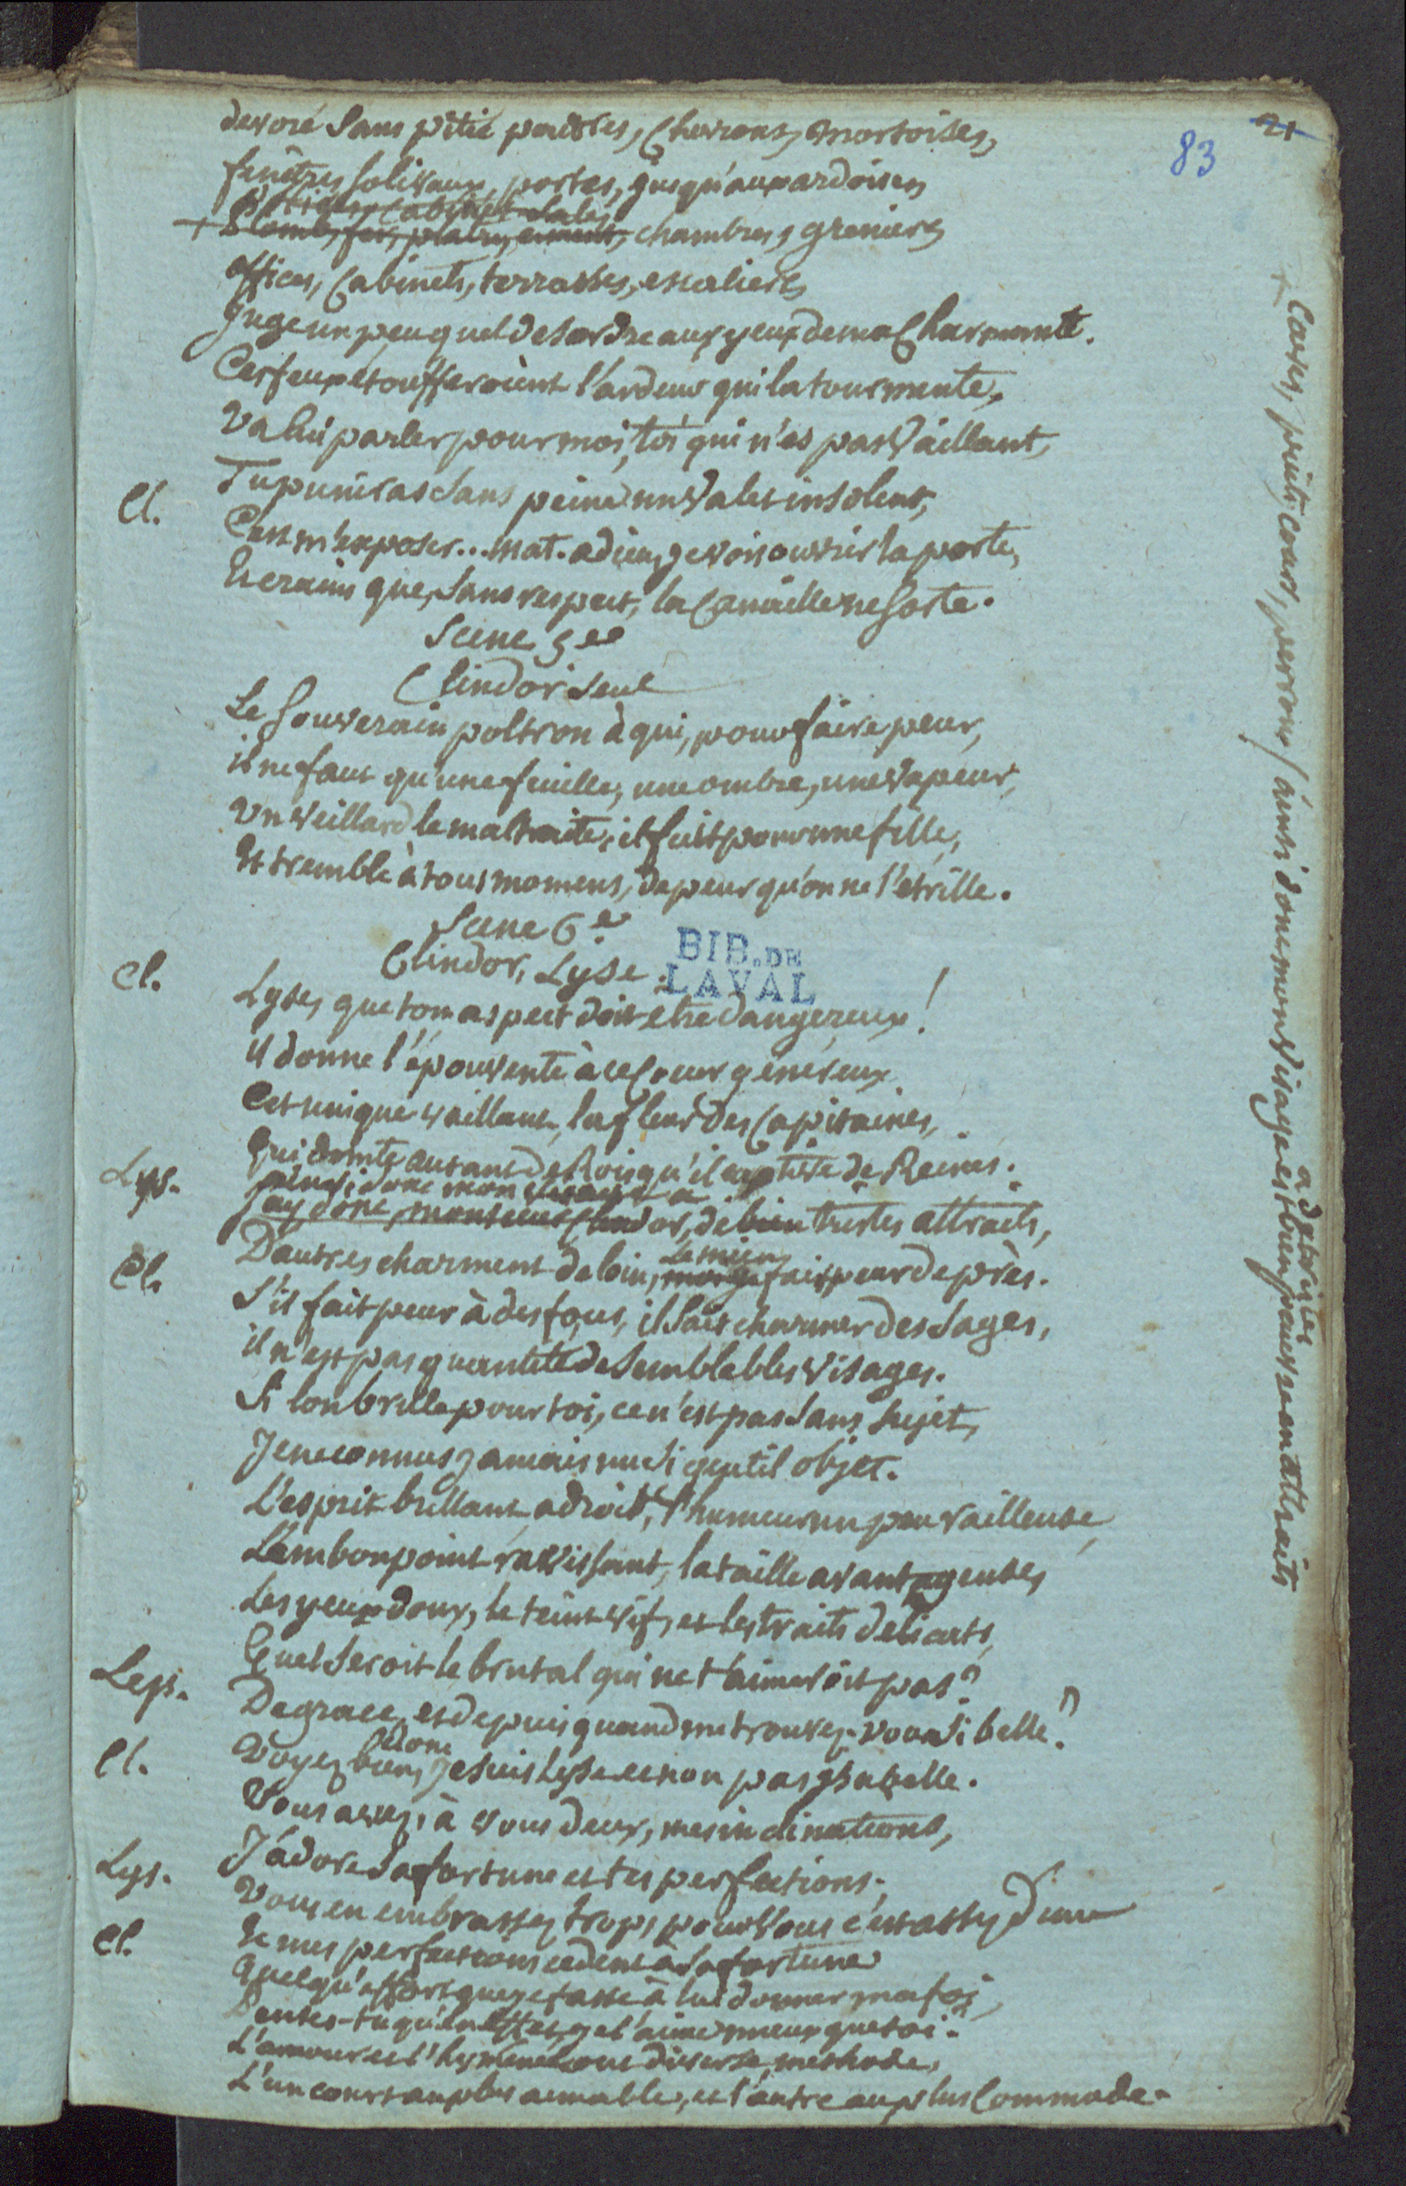 21
83
devoré sans pitié poutres, chevrons, mortoises,
fenêtres, solivaux, portes, jusqu'aux ardoises
cabinet sales
+ Plomb, fer, platre, ciment, chambres, greniers
offices, cabinets, terrasses, escaliers
Juge un peu quel desordre aux yeux de ma charmante.
Ces feux étoufferoient l'ardeur qui la tourmente,
Va lui parler pour moi, toi qui n'es pas vaillant,
Tu puniras sans peine un valet insolent,
Cl. C'est m'exposer... mat. adieu, je vois ouvrir la porte,
Et crains que, sans respect, la canaille ne sorte.
Scene 5ee
Clindor seul
Le souverain poltron à qui, pour faire peur,
il ne faut qu'une feuille, une ombre, une vapeur,
un veillard le maltraite, il fuit pour une fille,
Et tremble à tous momens, de peur qu'on ne l'etrille.
Scene 6.e
Clindor, Lyse.
BIB. DE
LAVAL
Cl. Lyse, que ton aspect doit etre dangereux!
il donne l'épouvente à ce coeur généreux
Cet unique vaillant, la fleur des Capitaines,
Qui domte autant de Rois qu'il captive de Reines.
ainsi donc mon visage a
Lys. j'ay donc, monsieur Clindor, de bien tristes attraits,
le mien
D'autres charment de loin, moi je fait peur de près.
Cl. S'il fait peur à des fous, il sait charmer des sages,
il n'est pas quantité de semblables visages.
Si l'on brille pour toi, ce n'est pas sans sujet,
Je ne connus jamais un si gentil objet.
L'esprit brillant, adroit, l'humeur un peu railleuse,
L'embonpoint ravissant, la taille avantageuse,
Les yeux doux, le teint vif, et les traits délicats,
Quel seroit le brutal qui ne t'aimeroit pas?
Lys. De grace, et depuis quand me trouvez-vous si belle?
donc
Voyez bien, je suis Lyse et non pas Isabelle.
Cl. Vous avez, à vous deux, mes inclinations,
J'adore sa fortune et tes perfections;
Lys. Vous en embrassez trop, pour vous c'est assez d'une
Et mes perfections cedent à sa fortune
Cl. Quelqu'effort que je fasse à lui donner ma foi,
Penses-tu qu'en effet, je l'aime mieux que toi?
L'amour et l'hymenée ont diverse methode,
L'un court au plus aimable, et l'autre au plus commode.
+ Caves, puits, cours, perrons / ainsi donc mon visage est bien pauvre en attraits